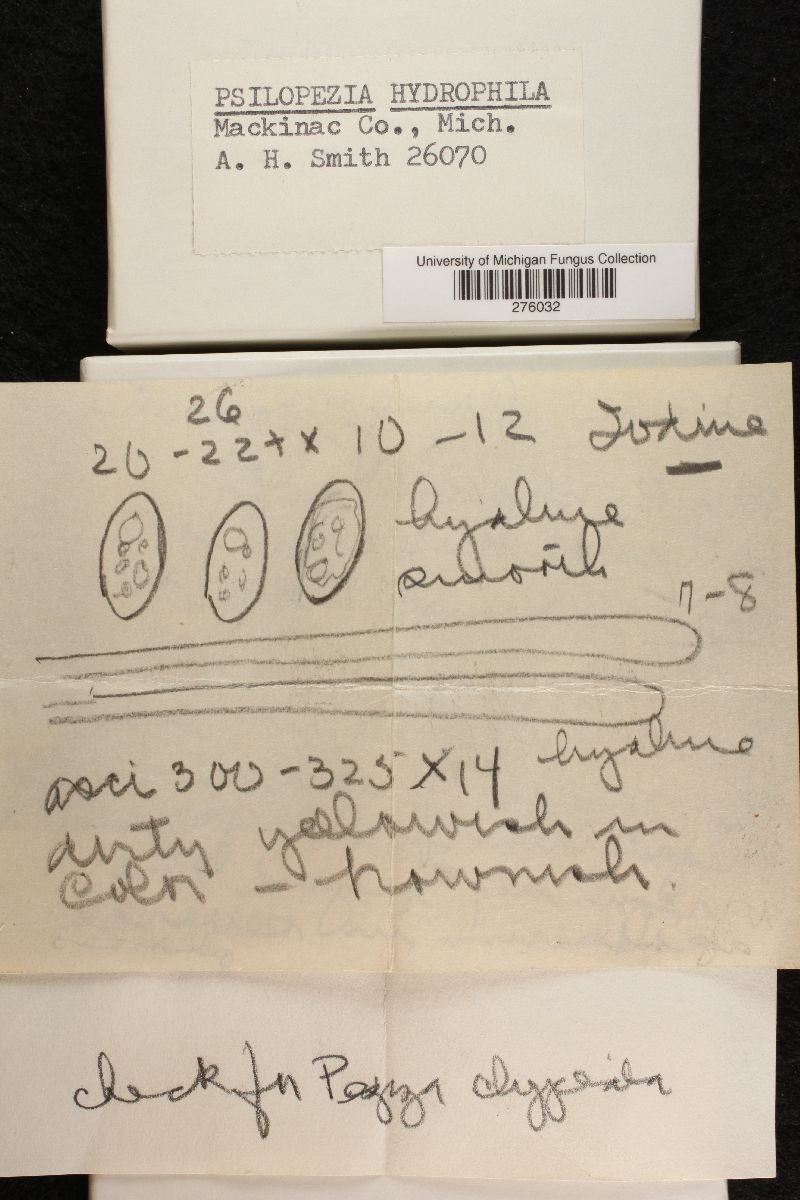 PSILOPEZIA HYDROPHILA
Mackinac Co., Mich.
A. H. Smith 26070
University of Michigan Fungus Collection
276032
26
20 - 22 + x 10 - 12 Iodine
hyaline
smooth
7-8
asci 300 - 325 X 14 hyaline
dirty yellowish in
color - brownish.
check for Peziza clypeata